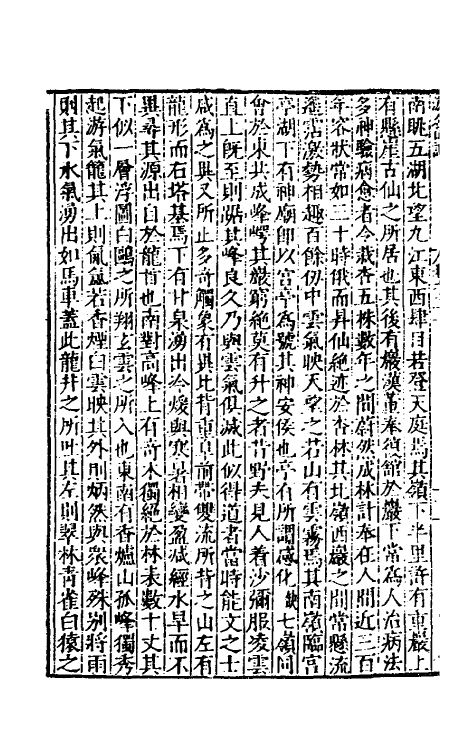 南眺五湖北望九江東西肆目若登天庭焉其嶺下半里許有重巖上
有懸崖古仙之所居也其後有巖漢董奉復館於巖下常為人治病法
多神驗病愈者令栽杏五株數年之間蔚然成林計奉在人間近三百
年容狀常如三十時俄而昇仙絶迹於杏林其北嶺西巖之間常懸流
遙霑激勢相趣百餘仞中雲氣映天望之若山有雲霧焉其南嶺臨宫
亭湖下有神廟即以宫亭為號其神安侯也亭有所謂感化缺七嶺同
會於東共成峰崿其巖窮絶莫有升之者昔野夫見人着沙彌服凌雲
直上既至則踞其峰良久乃與雲氣俱滅此似得道者當時能文之士
咸為之異又所止多奇觸象有異北背重阜前帶雙流所背之山左有
龍形而右塔基焉下有甘泉湧出冷煖與寒暑相變盈減經水旱而不
異尋其源出自於龍首也南對高峰上有奇木獨絶於林表數十丈其
下似一層浮圖白鷗之所翔玄雲之所入也東南有香爐山孤峰獨秀
起游氣籠其上則氤氳若香煙白雲映其外則炳然與衆峰殊别將雨
則其下水氣湧出如馬車蓋此龍井之所吐其左則翠林青雀白猿之